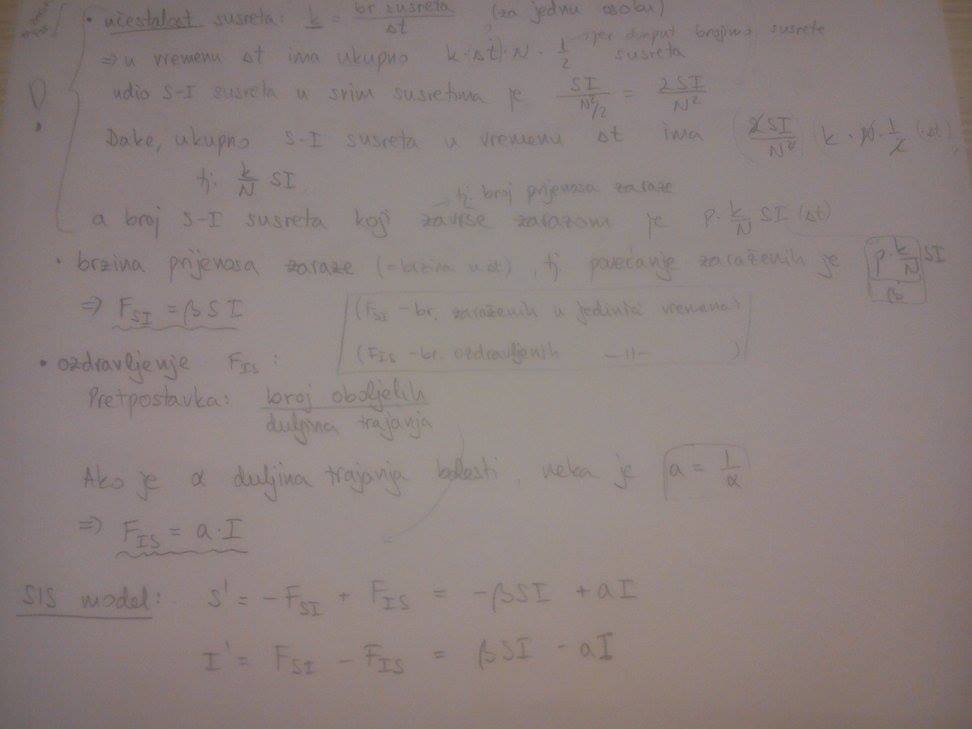 • učestalost susreta: k = br susreta / Δt (za jednu osobu)
⇒ u vremenu Δt ima ukupno k·Δt·N·1/2 susreta
jer dvaput brojimo susrete
udio S-I susreta u svim susretima je SI / N²/2 = 2SI / N²
Dakle, ukupno S-I susreta u vremenu Δt ima (2SI / N²) (k · N · 1/2 (·Δt))
tj. k/N SI
tj. broj prijenosa zaraze
a broj S-I susreta koji završe zarazom je p · k/N SI (Δt)
• brzina prijenosa zaraze (= brzina u Δt), tj. povećanje zaraženih je p · k/N SI
β
⇒ F_SI = βSI
(F_SI - br. zaraženih u jedinici vremena)
(F_IS - br. ozdravljenih —||— )
• ozdravljenje F_IS :
Pretpostavka: broj oboljelih / duljina trajanja
Ako je α duljina trajanja bolesti, neka je a = 1/α
⇒ F_IS = a·I
SIS model: S' = -F_SI + F_IS = -βSI + aI
I' = F_SI - F_IS = βSI - aI